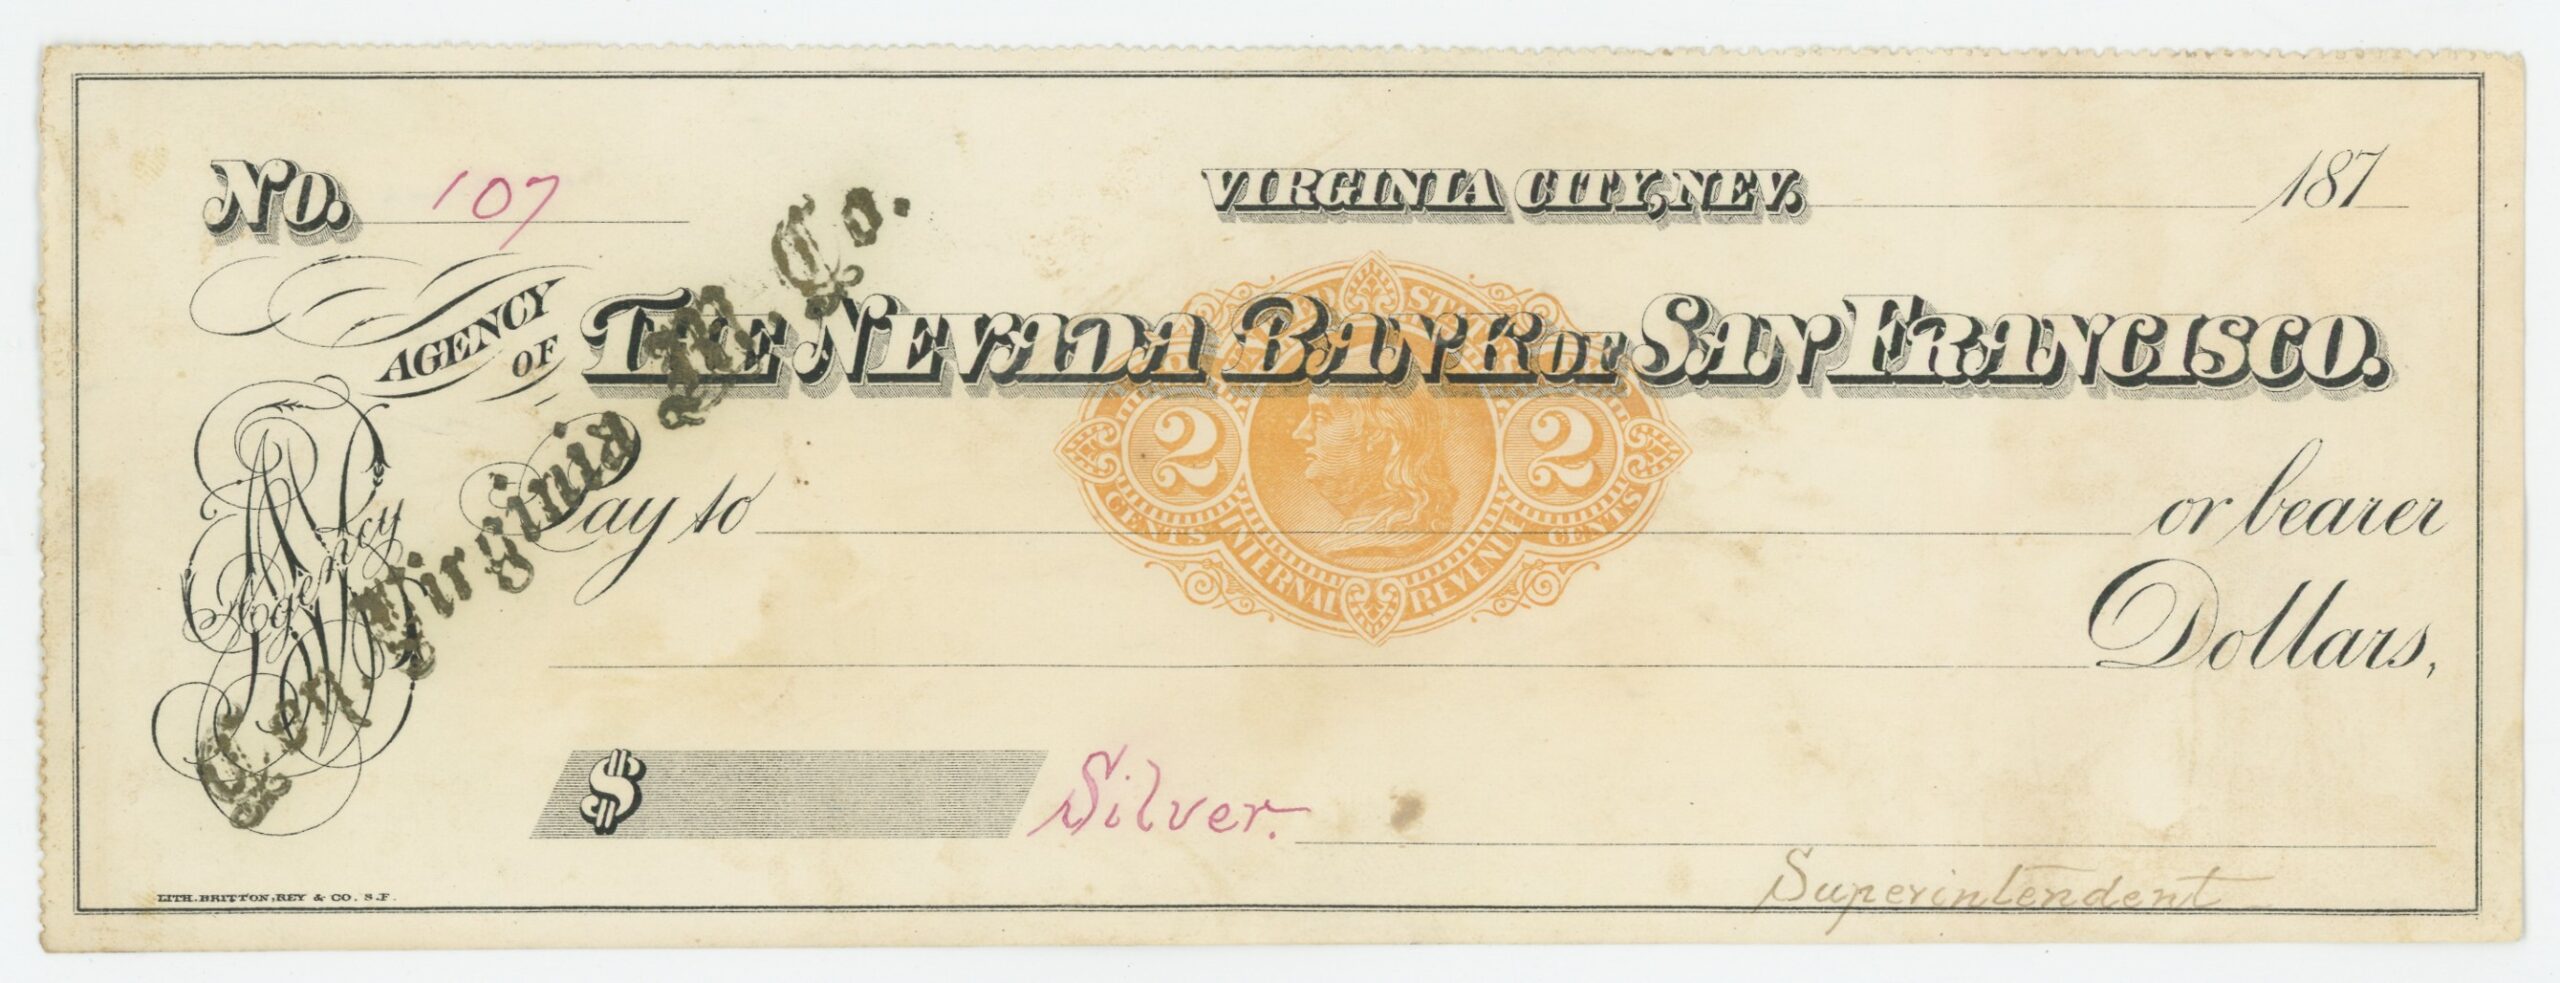 No. 107
VIRGINIA CITY, NEV. 187
AGENCY OF THE NEVADA BANK OF SAN FRANCISCO.
Con. Virginia M. Co.
Agency
2 2
CENTS INTERNAL REVENUE CENTS
Pay to or bearer
Dollars,
$ Silver.
Superintendent
LITH. BRITTON, REY & CO. S.F.